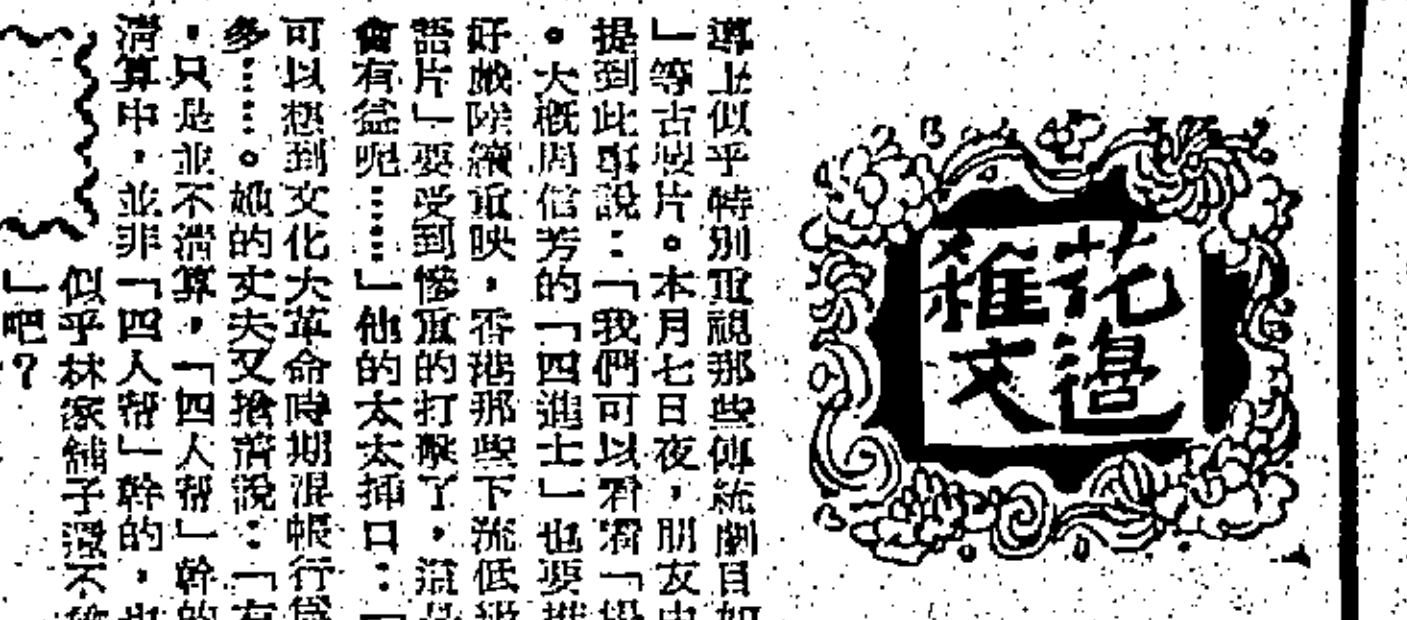 花邊
雜文
導上似乎特別重視那些傳統劇目如
」等古裝片。本月七日夜,朋友中
提到此事說:「我們可以看看「
。大概周信芳的「四進士」也要
好戲陸續重映,香港那些下流低級
語片」要受到慘重的打擊了,這
會有益呢……」他的太太插口:「
可以想到文化大革命時期混帳行爲
多……。她的丈夫又搶着說:「有
,只是並不清算,「四人幫」幹的
清算中,並非「四人幫」幹的,也
似乎林家舖子還不
」吧?